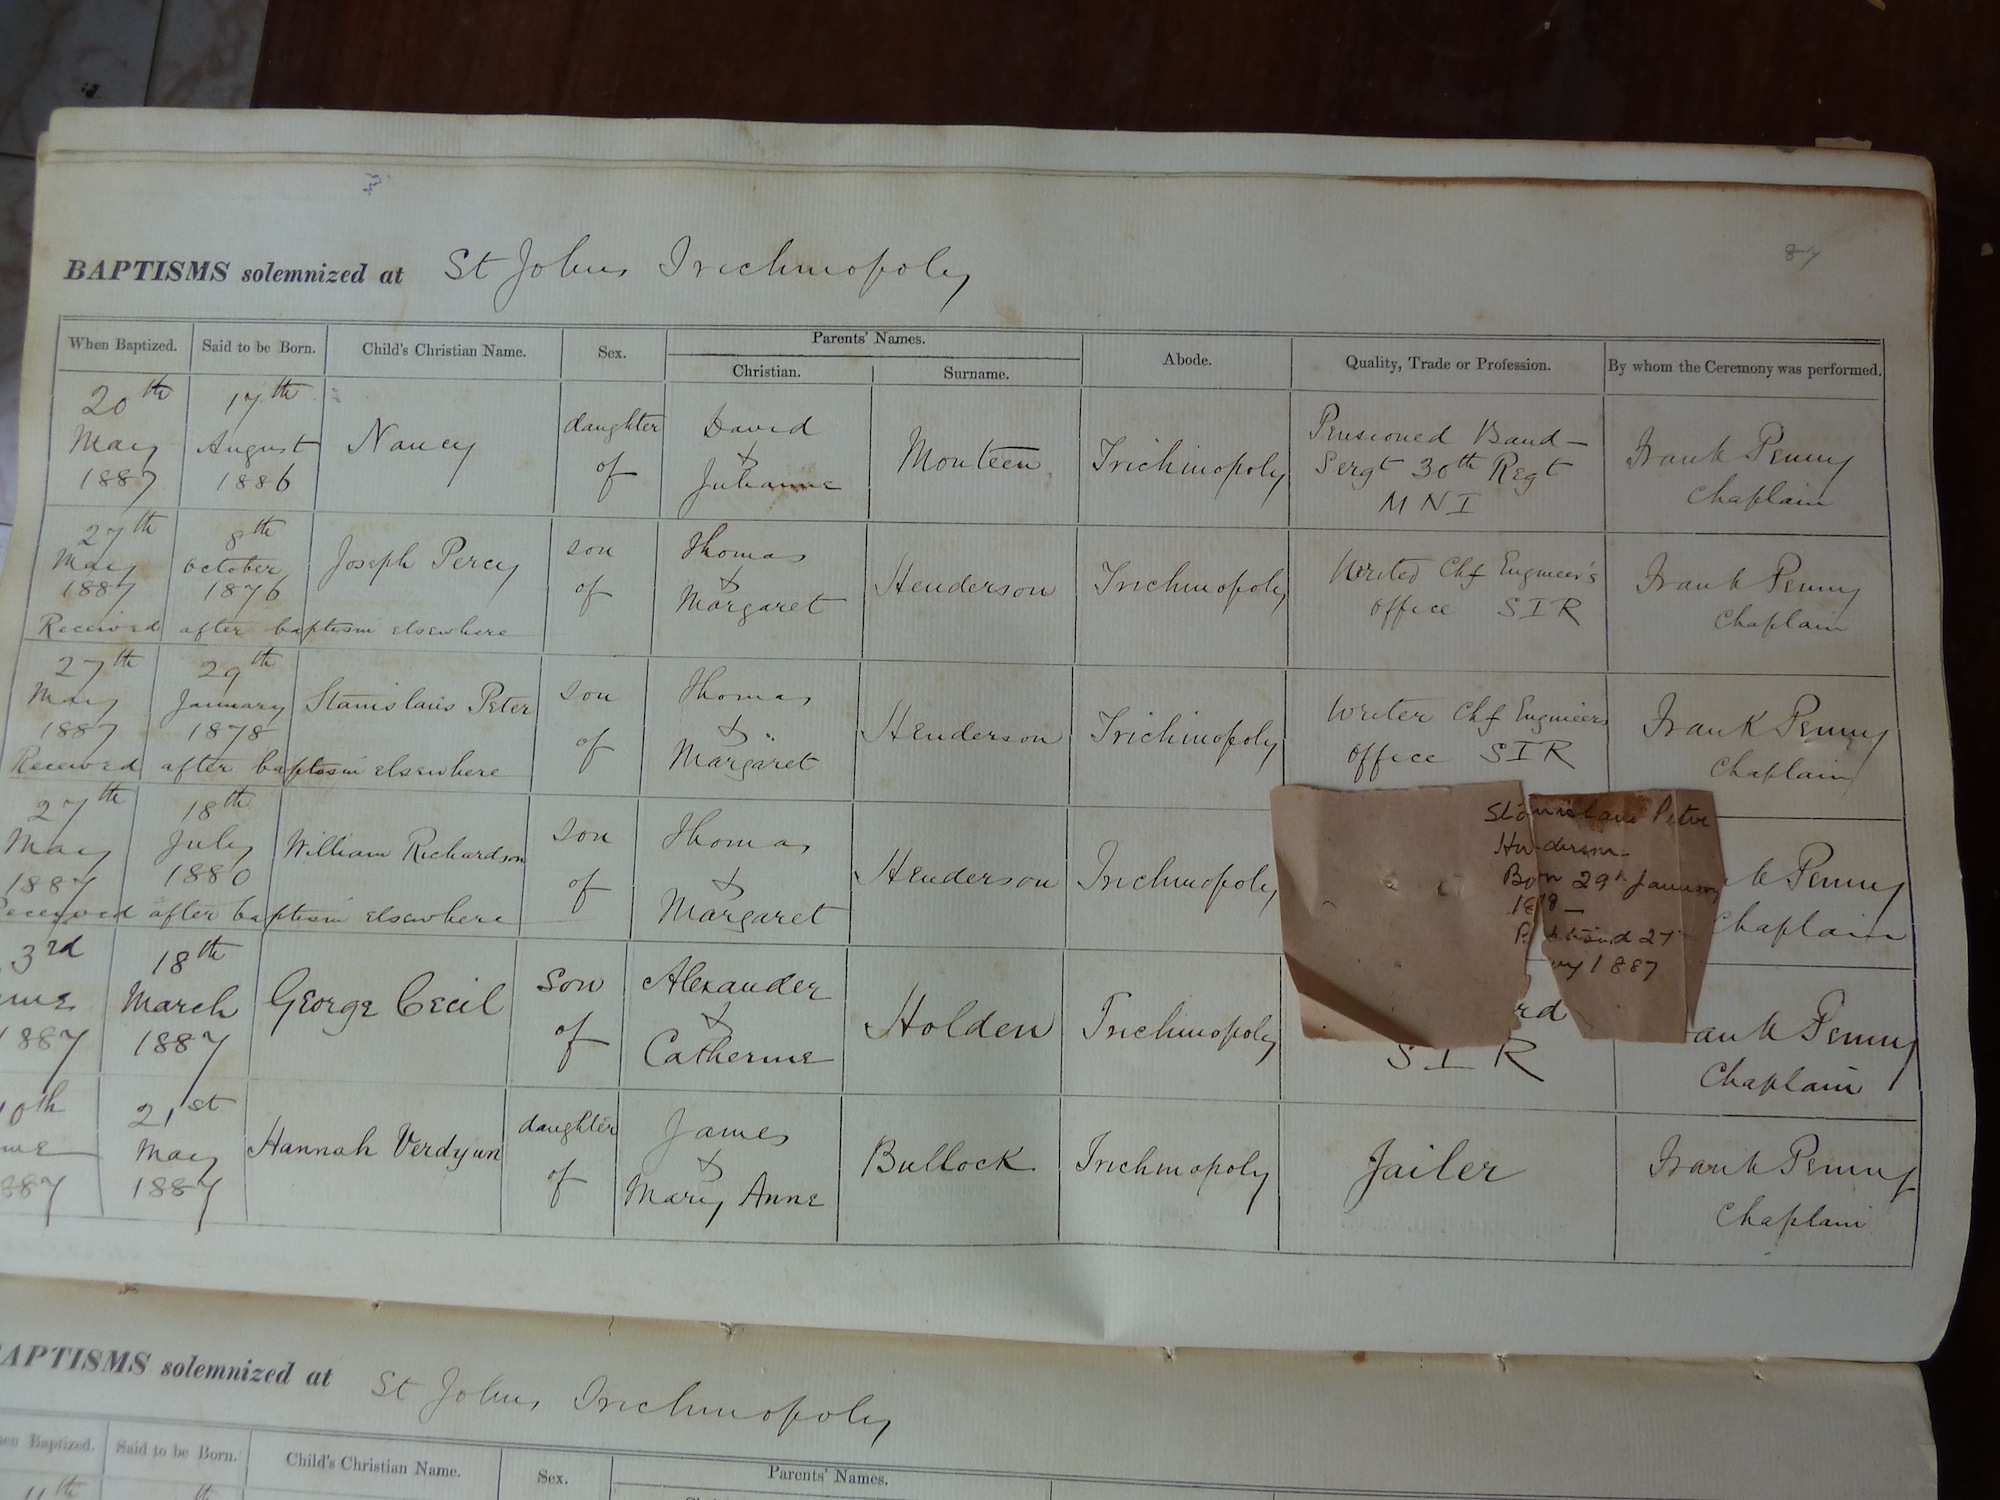 87
BAPTISMS solemnized at St Johns Trichinopoly
When Baptized. Said to be Born. Child's Christian Name. Sex. Parents' Names. Abode. Quality, Trade or Profession. By whom the Ceremony was performed.
Christian. Surname.
20th 17th daughter David Pensioned Band-
May August Nancy of & Monteen Trichinopoly Sergt 30th Regt Frank Penny
1887 1886 Julianne MNI Chaplain
27th 8th son Thomas
May October Joseph Percy of & Henderson Trichinopoly Chf Engineer's Frank Penny
1887 1876 Margaret office SIR Chaplain
Received after baptism elsewhere
27th 29th son Thomas
May January Stanislaus Peter of & Henderson Trichinopoly Writer Chf Engineers Frank Penny
1887 1878 Margaret office SIR Chaplain
Received after baptism elsewhere
27th 18th son Thomas
May July William Richardson of & Henderson Trichinopoly Penny
1887 1880 Margaret Chaplain
Received after baptism elsewhere
Peter
Born 29th January
27
1887
3rd 18th son Alexander
March George Cecil of & Holden Trichinopoly rd Penny
1887 1887 Catherine SIR Chaplain
21st daughter James
May Hannah Verdyun of & Bullock Trichinopoly Jailer Frank Penny
1887 Mary Anne Chaplain
BAPTISMS solemnized at St Johns Trichinopoly
Baptized. Said to be Born. Child's Christian Name. Sex. Parents' Names.
11th th